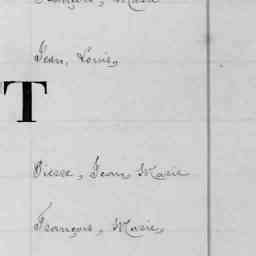 François, Marie
Jean, Louis,
T
Pierre, Jean, Marie
François, Marie,